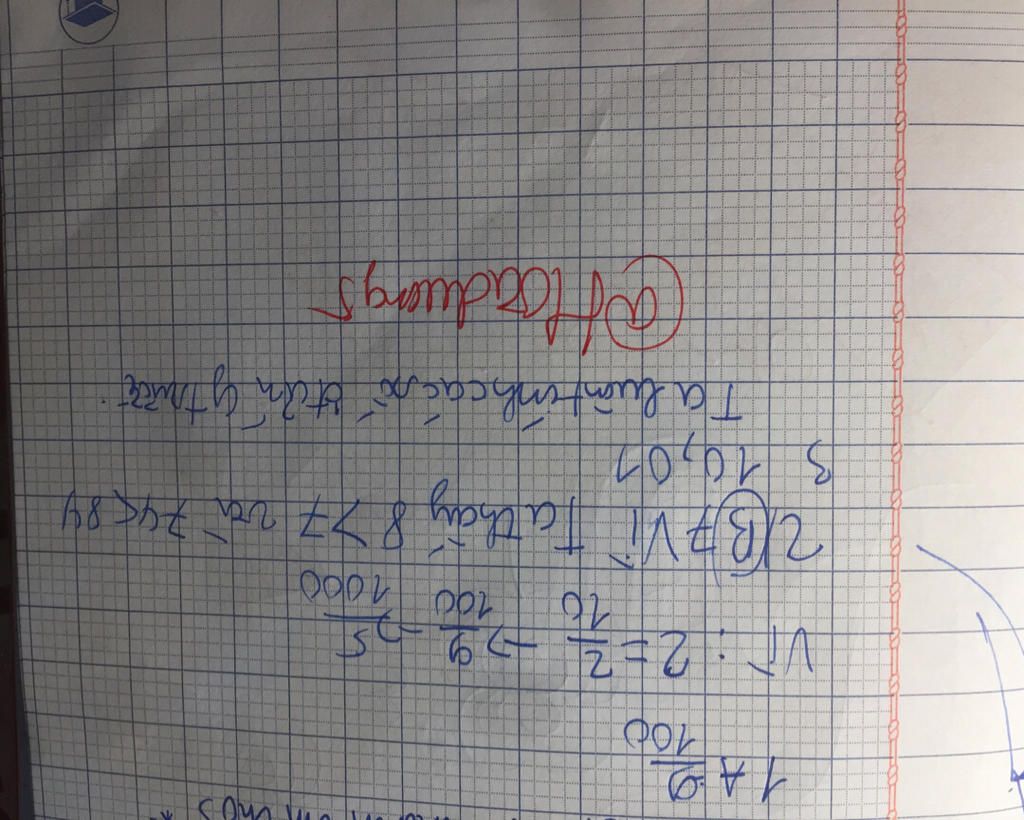 1 A 9/100
Vì : 2 = 2/10 → 9/100 → 5/1000
2 B 7 Vì Ta thấy 8 > 7 và 74 < 84
3 10,01
Ta luôn tính các số
@Hoaduong5